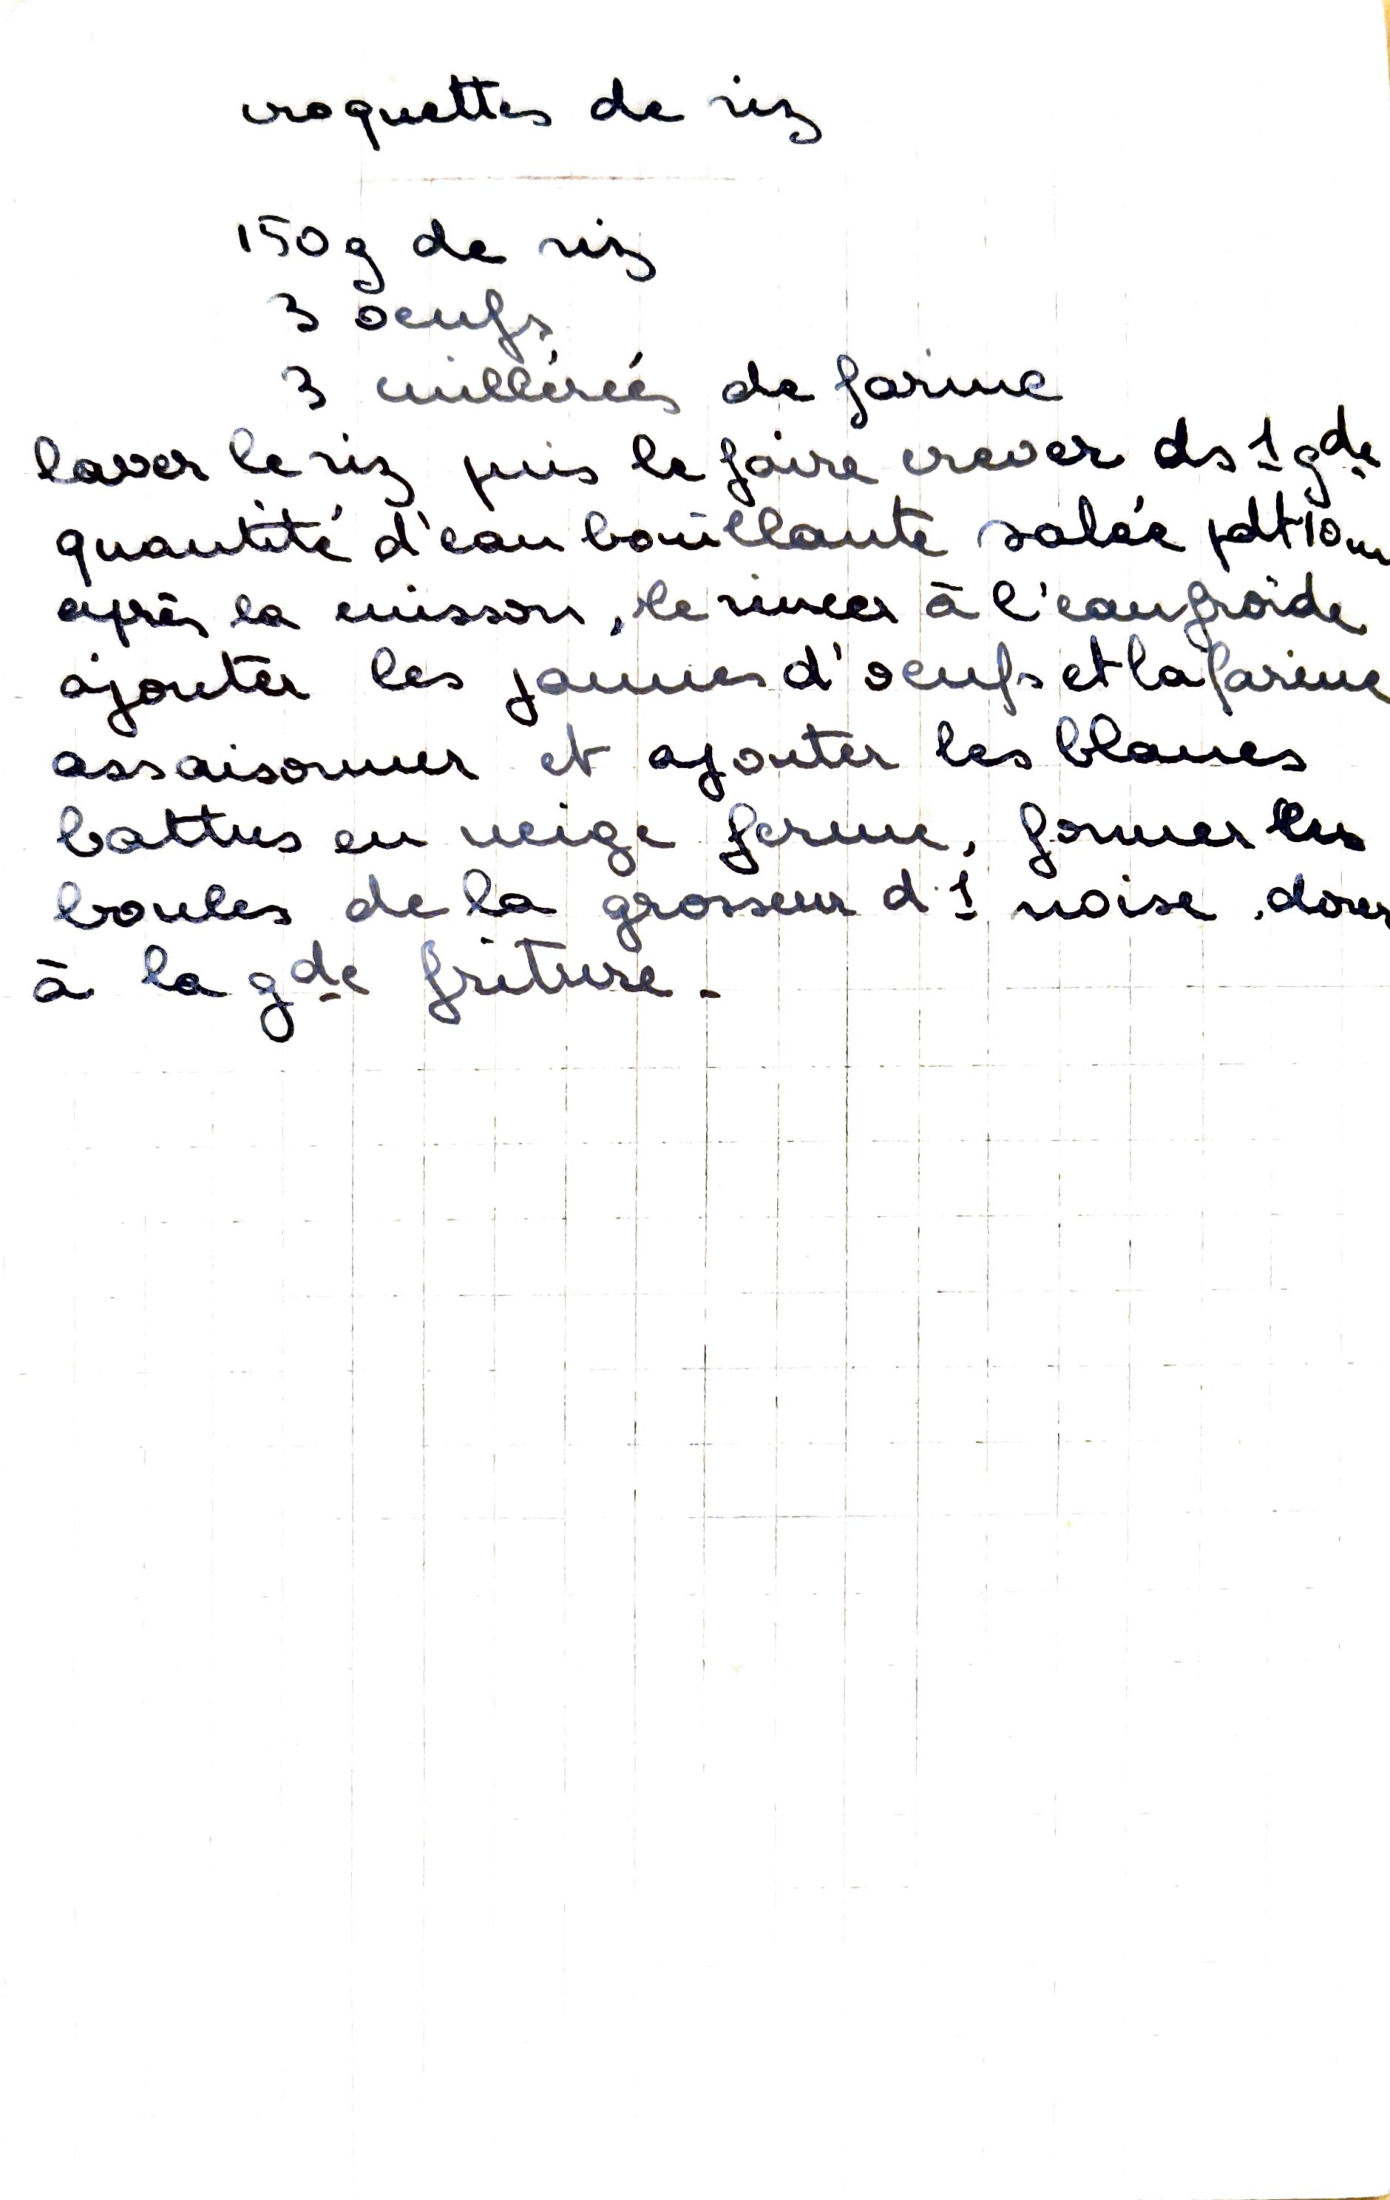 croquettes de riz
150g de riz
3 oeufs
3 cuillérées de farine
laver le riz puis le faire crever ds 1 gde
quantité d'eau bouillante salée pdt 10m
après la cuisson, le rincer à l'eau froide
ajouter les jaunes d'oeufs et la farine
assaisonner et ajouter les blancs
battus en neige ferme, former les
boules de la grosseur d'1 noise. dorer
à la gde friture.